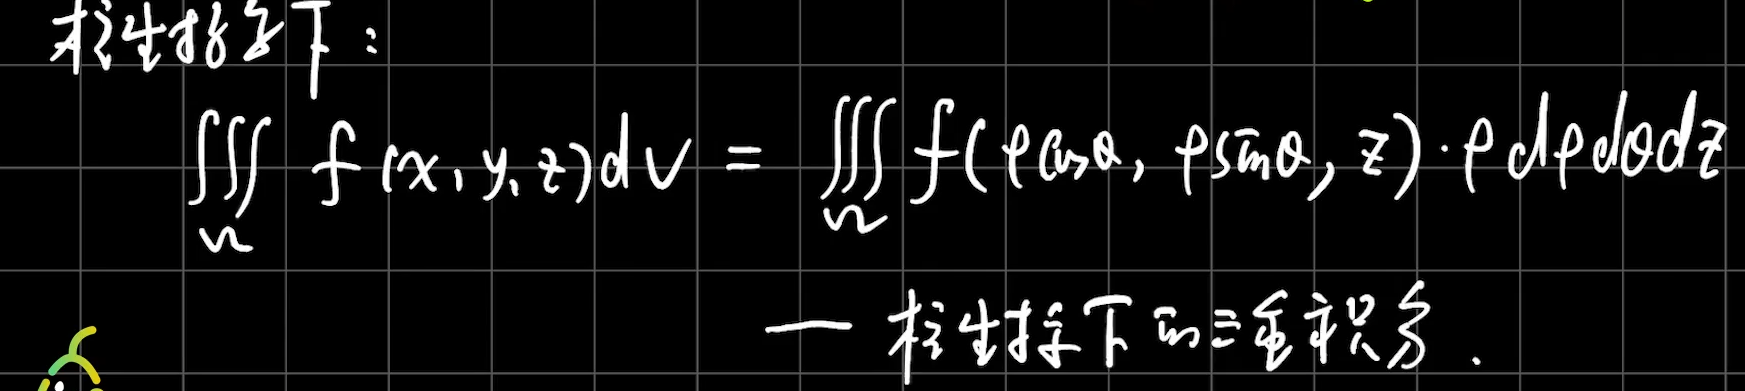 柱坐标系下：
∭_Ω f(x, y, z)dv = ∭_Ω f(ρcosθ, ρsinθ, z)·ρdρdθdz
— 柱坐标下的三重积分.